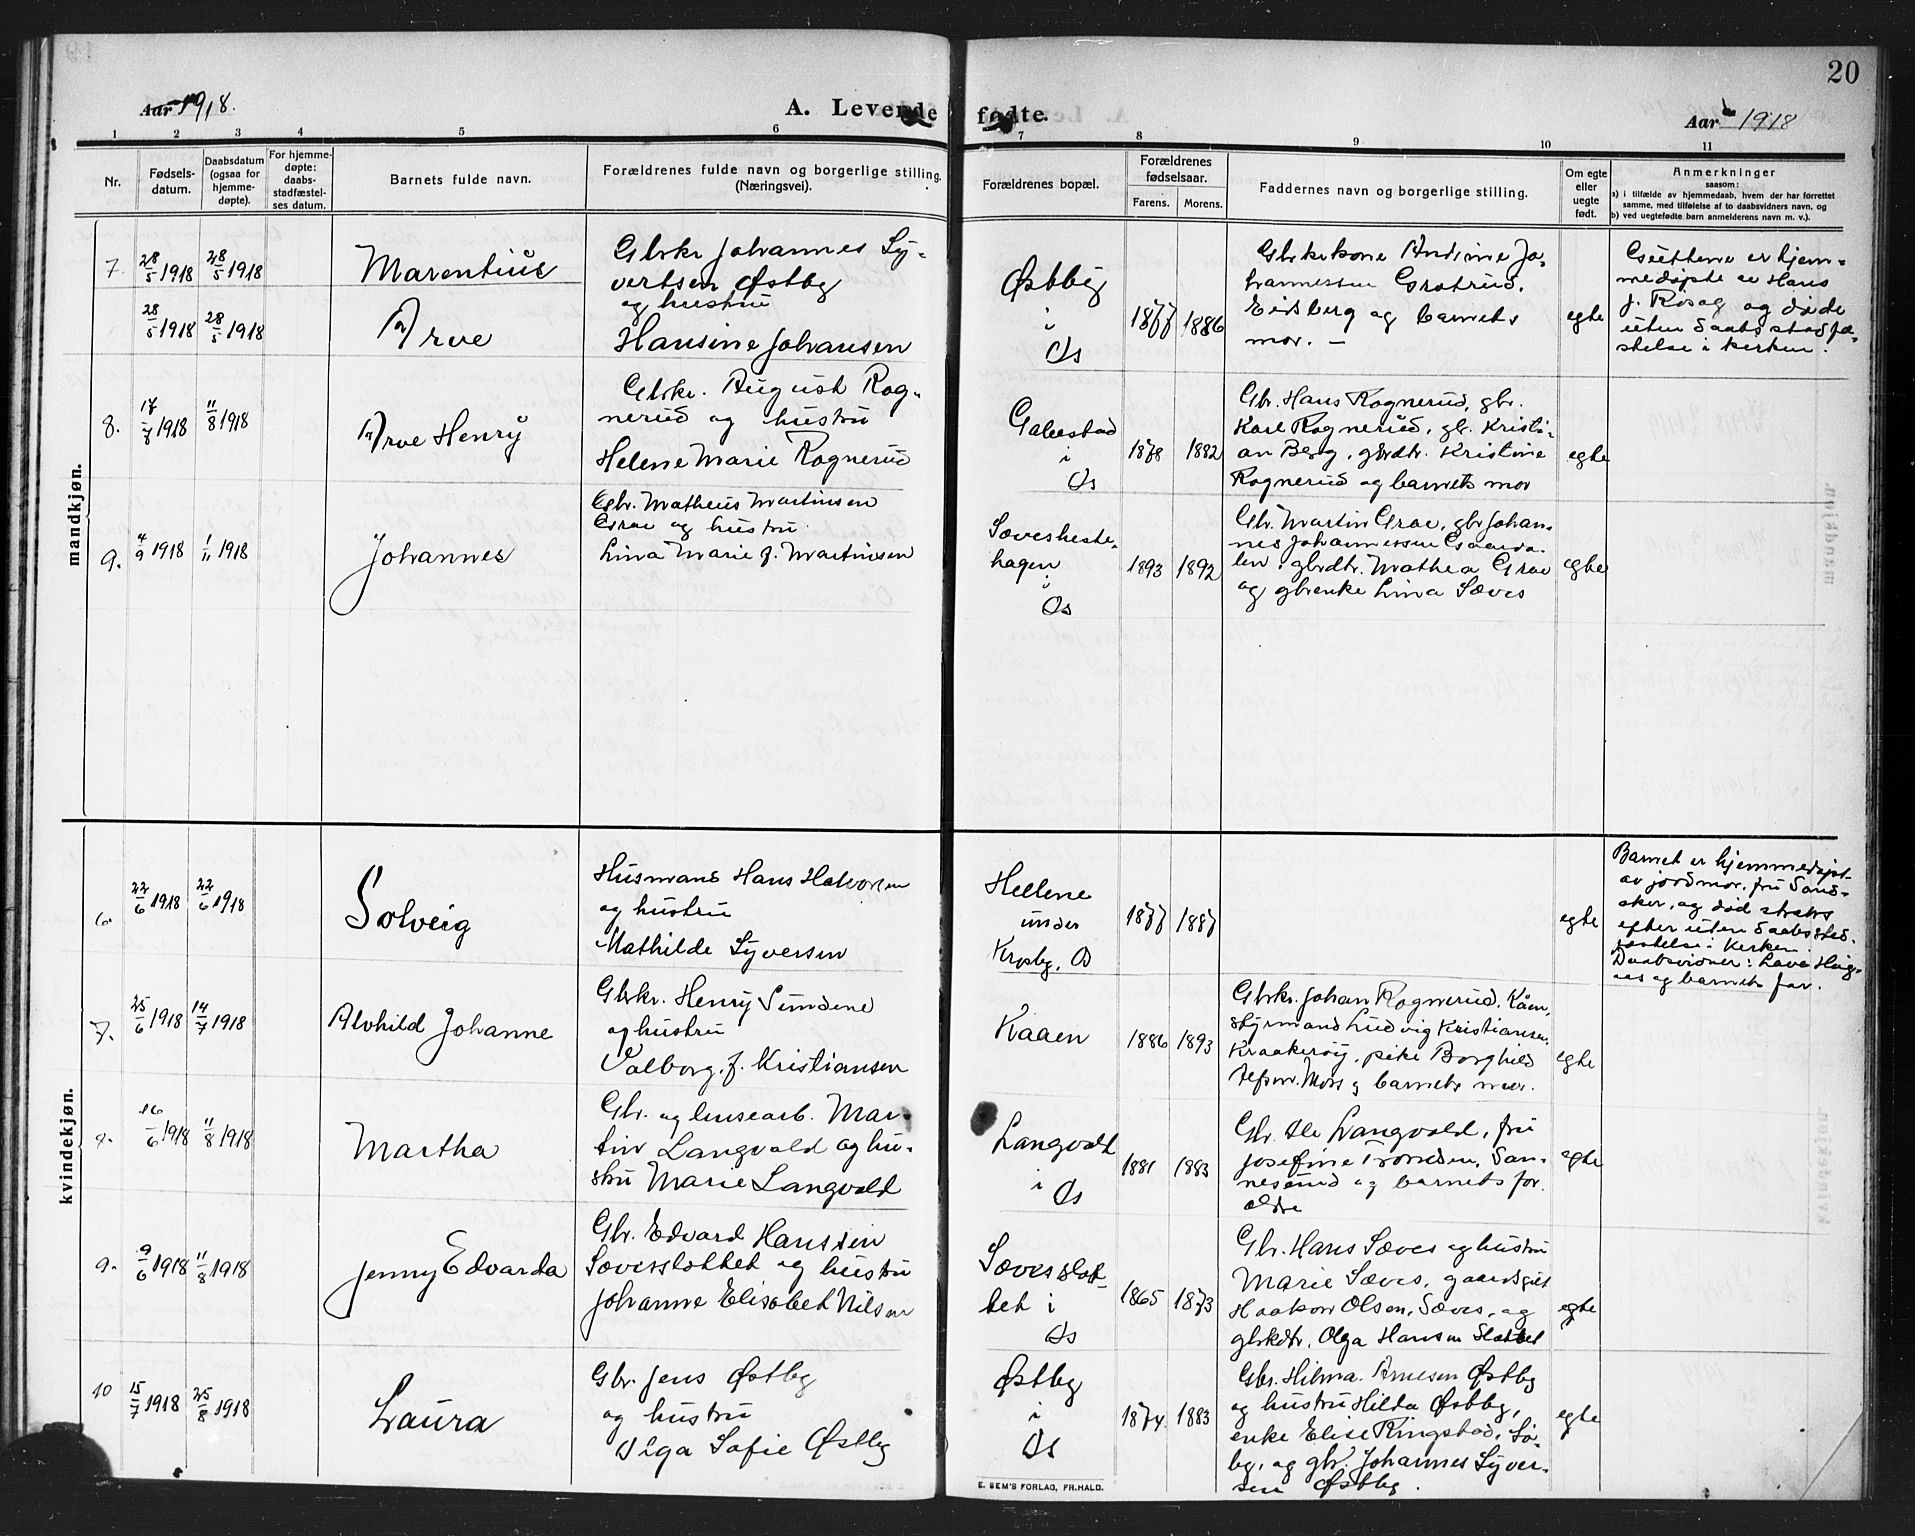 20
Aar 1918.
A. Levende fødte.
Aar 1918
1 2 3 4 5 6 7 8 9 10 11
Nr.
Fødsels-
datum.
Daabsdatum
(ogsaa for
hjemme-
døpte).
For hjemme-
døpte:
daabs-
stadfæstel-
ses datum.
Barnets fulde navn.
Forældrenes fulde navn og borgerlige stilling.
(Næringsvei).
Forældrenes bopæl.
Forældrenes
fødselsaar.
Farens. Morens.
Faddernes navn og borgerlige stilling.
Om egte
eller
uegte
født.
Anmerkninger
saasom:
a) i tilfælde av hjemmedaab, hvem der har forrettet
samme, med tilføielse af to daabsvidners navn, og
b) ved uegtefødte barn anmelderens navn m. v.).
mandkjøn.
7. 28/5 1918 28/5 1918
Marentius
28/5 1918 28/5 1918
Arve
Gbrkr Johannes Sy-
vertsen Østby
og hustru
Hansine Johansen
Østby
i
Os
1877 1886
Gbrkrkone Andrine Jo-
hannessen Grøtrud,
Eidsberg og barnets
mor. —
egte
er hjem-
medøpte av Hans
J. Rosag og døde
uten daabsstadfæ-
stelse i kirken.
8. 17/7 1918 11/8 1918
Arve Henry
Gbrkr. August Rog-
nerud og hustru
Helene Marie Rognerud
Galestad
i
Os
1878 1882
Gbr. Hans Rognerud, gbr.
Karl Rognerud, gb. Kristi-
an Berg, gbrdtr. Kristine
Rognerud og barnets mor
egte
9. 4/9 1918 1/11 1918
Johannes
Gbr. Matheus Martinsen
Grav og hustru
Lina Marie f. Martinsen
Sævesheste-
hagen
i
Os
1893 1892
Gbr. Martin Grav, gbr Johan-
nes Johannessen
gbrdtr. Mathea Grav
og gbrenke Lina Sæves
egte
kvindekjøn.
6. 22/6 1918 22/6 1918
Solveig
Husmand Hans Halvorsen
og hustru
Mathilde Syversen
Hellene
under
Krosby, Os
1877 1887
egte
Barnet er hjemmedøpt
av jordmor, fru Sand-
aker, og død straks
efter uten daabsstad-
fæstelse i kirken.
Daabsvidner:
og barnets far.
7. 25/6 1918 14/7 1918
Alvhild Johanne
Gbrkr. Henry Sundene
og hustru
Valborg, f. Kristiansen
Kaaen
1886 1893
Gbrkr. Johan Rognerud, Kåen,
styrmand Ludvig Kristiansen,
Kraakerøy, pike Borghild
Moss og barnets mor.
egte
8. 16/6 1918 11/8 1918
Martha
Gbr. og husearb. Mar-
tin Langvold og hu-
stru Marie Langvold
Langvold
i
Os
1881 1883
Gbr. Ole Langvold, fru
Josefine Tronsden, San-
nesund og barnets for-
ældre
egte
9. 9/6 1918 11/8 1918
Jenny Edvarda
Gbr. Edvard Hanssen
Sævesslottet og hustru
Johanne Elisabet Nilsen
Sævesslot-
tet i
Os
1865 1873
Gbr. Hans Sæves og hustru
Marie Sæves, gaardsgut
Haakon Olsen, Sæves, og
gbrkdtr. Olga Hansen Slottet
egte
10 15/7 1918 25/8 1918
Laura
Gbr. Jens Østby
og hustru
Olga Sofie Østby
Østby
i
Os
1874. 1883
Gbr. Hilmar Arnesen Østby
og hustru Hilda Østby,
enke Elise Ringstad, Sø-
by, og gbr. Johannes Syver-
sen Østby.
egte
E. SEM'S FORLAG, FR.HALD.